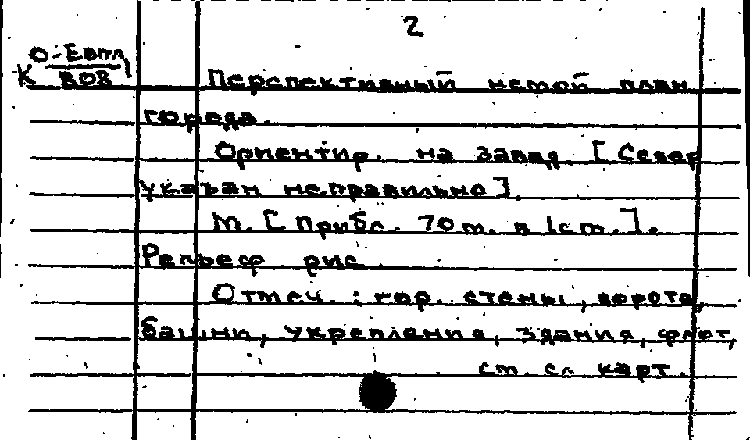 2
К О-Евпл
ВОВ
Перспективный немой план
города.
Ориентир. на запад. [Север
указан неправильно].
М. [Прибл. 70 m. в 1 cm.].
Рельеф рис.
Отмеч.: гор. стены, ворота,
башни, укрепления, здания, флот,
см. сл. карт.